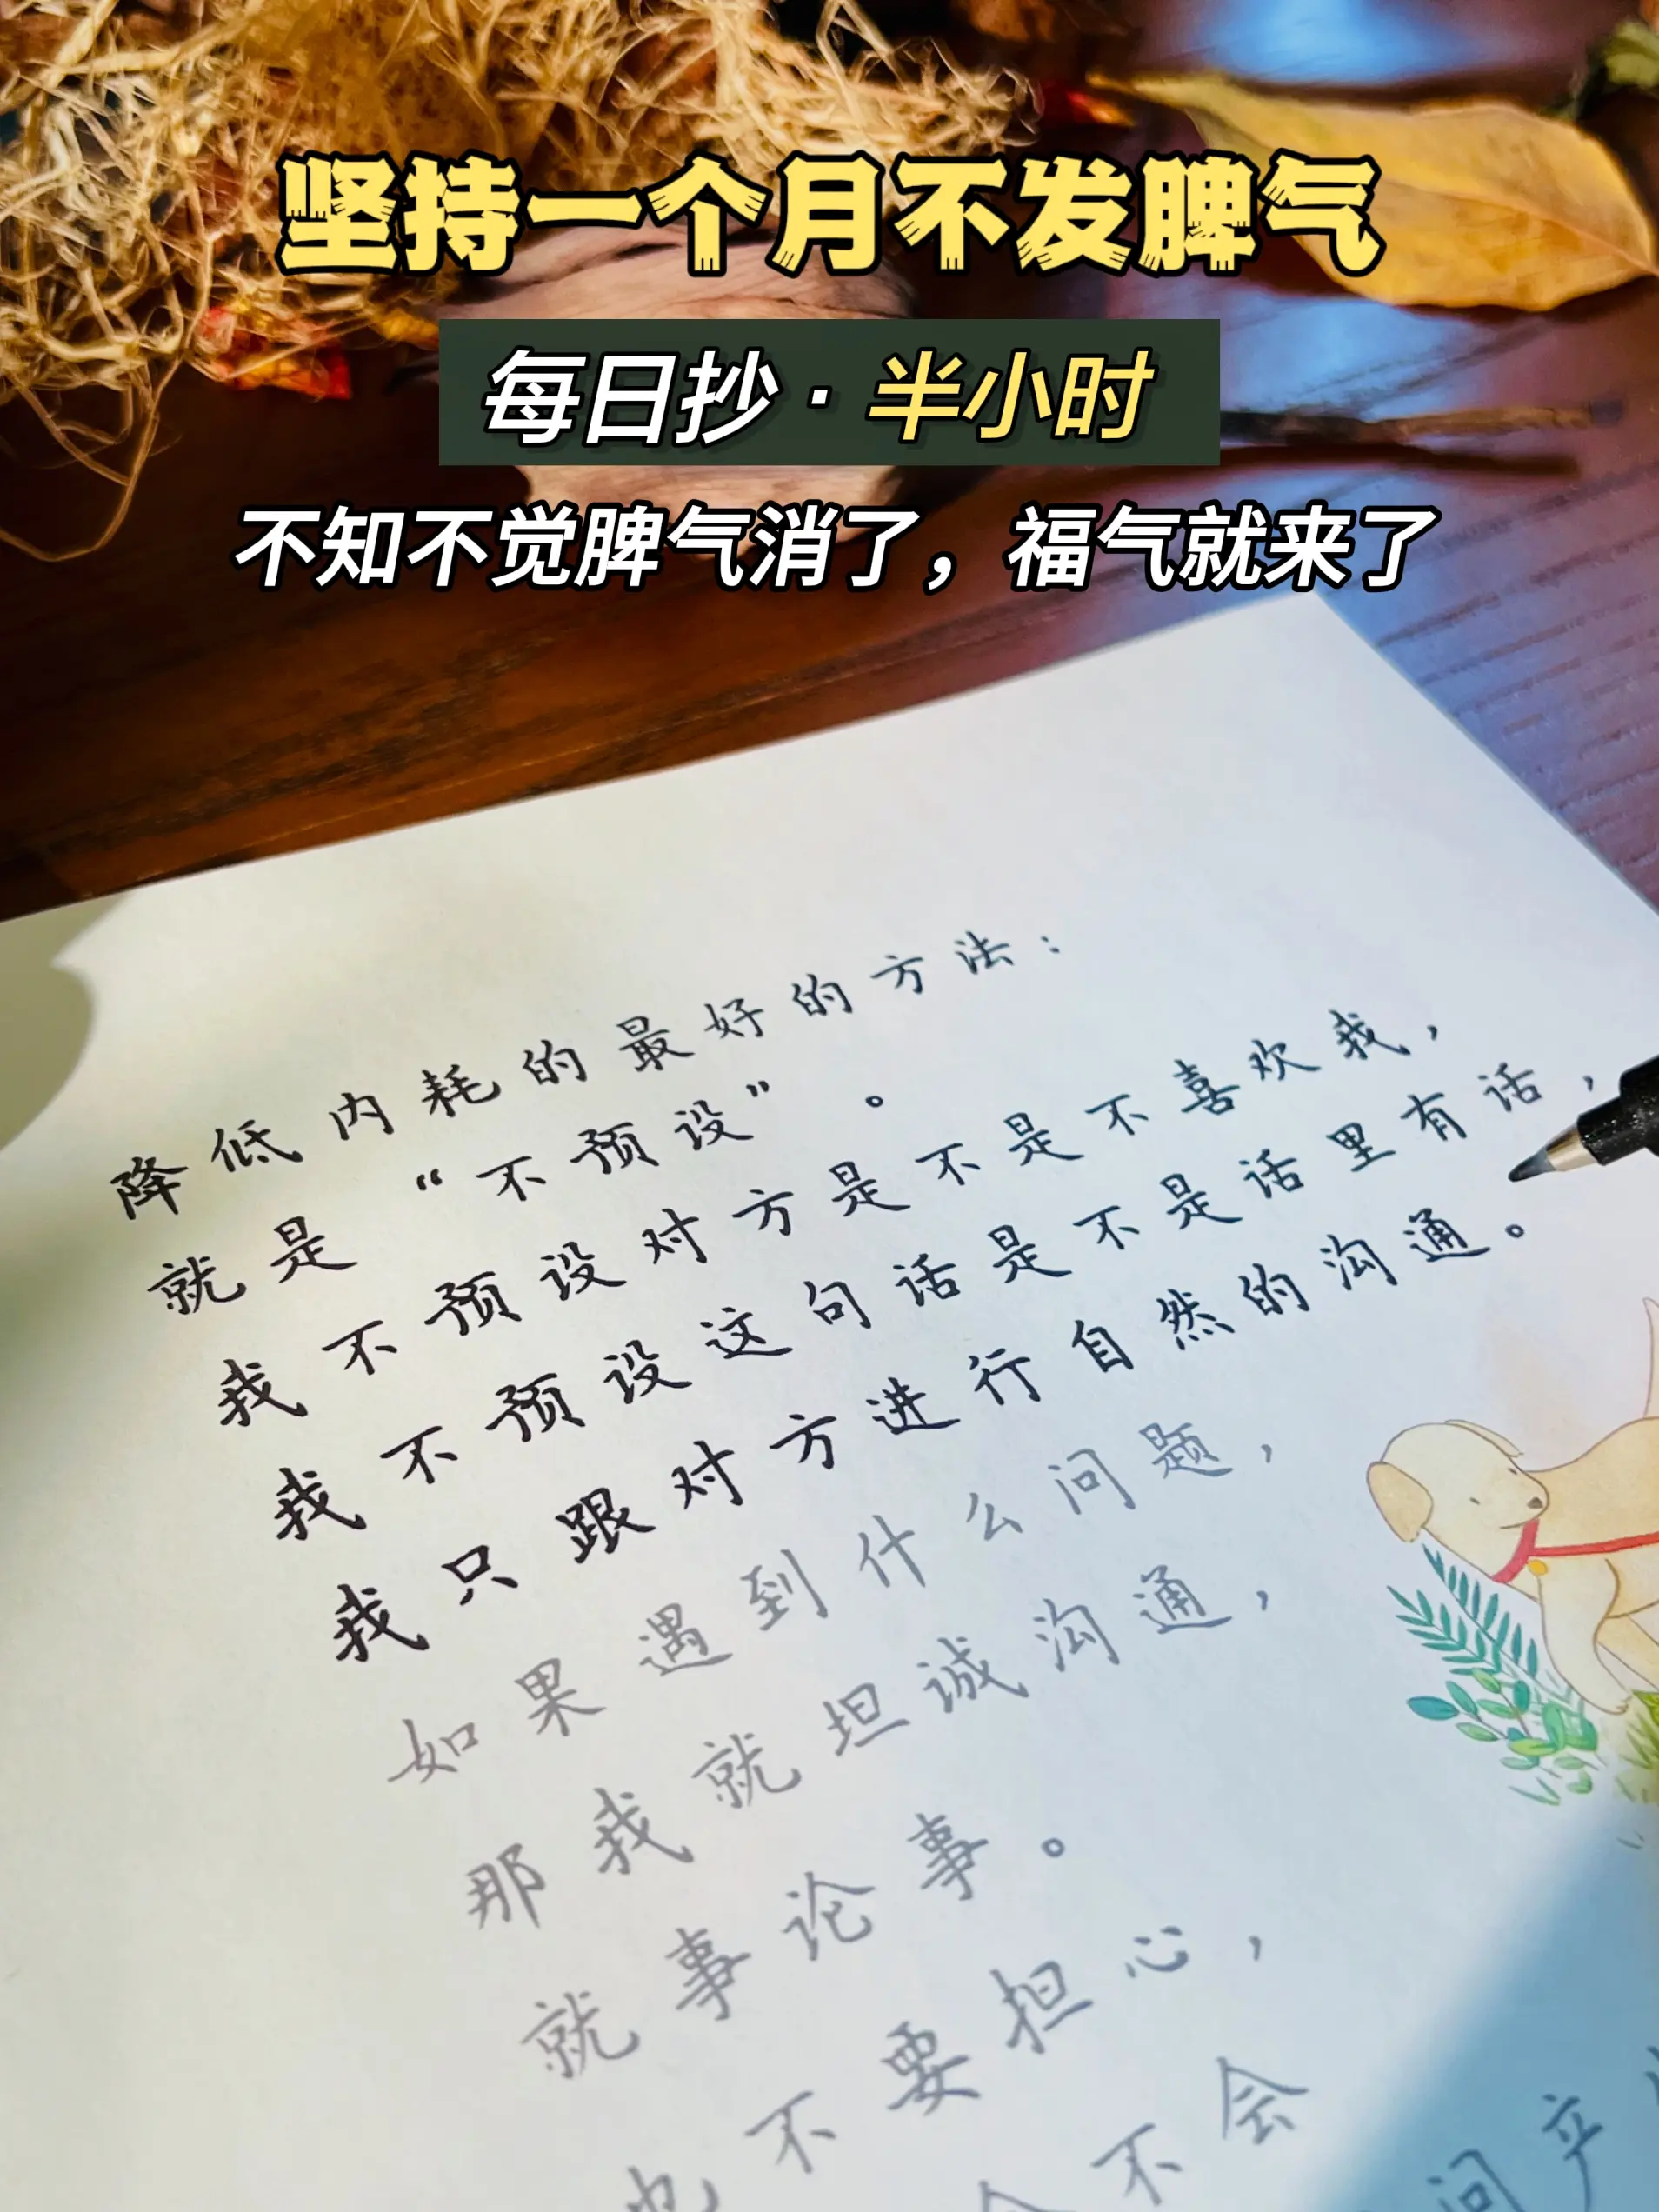 坚持一个月不发脾气
每日抄·半小时
不知不觉脾气消了，福气就来了
降低内耗的最好的方法：
就是“不预设”。
我不预设对方是不是不喜欢我，
我不预设这句话是不是话里有话，
我只跟对方进行自然的沟通。
如果遇到什么问题，
那我就坦诚沟通，
就事论事。
也不要担心，
会不会
间产